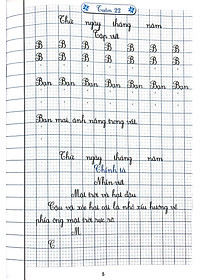 Tuần 22
Thứ ngày tháng năm
Tập viết
B B B B B B B
B B B B B B B
Ban Ban Ban Ban Ban Ban Ban
Ban mai ánh nắng trong vắt.
Thứ ngày tháng năm
Chính tả
Nhìn viết
Mặt trời và hạt đậu
Cậu và xòe hai cái lá nhỏ xíu hướng về
phía ông mặt trời rực rỡ.
M
C
8